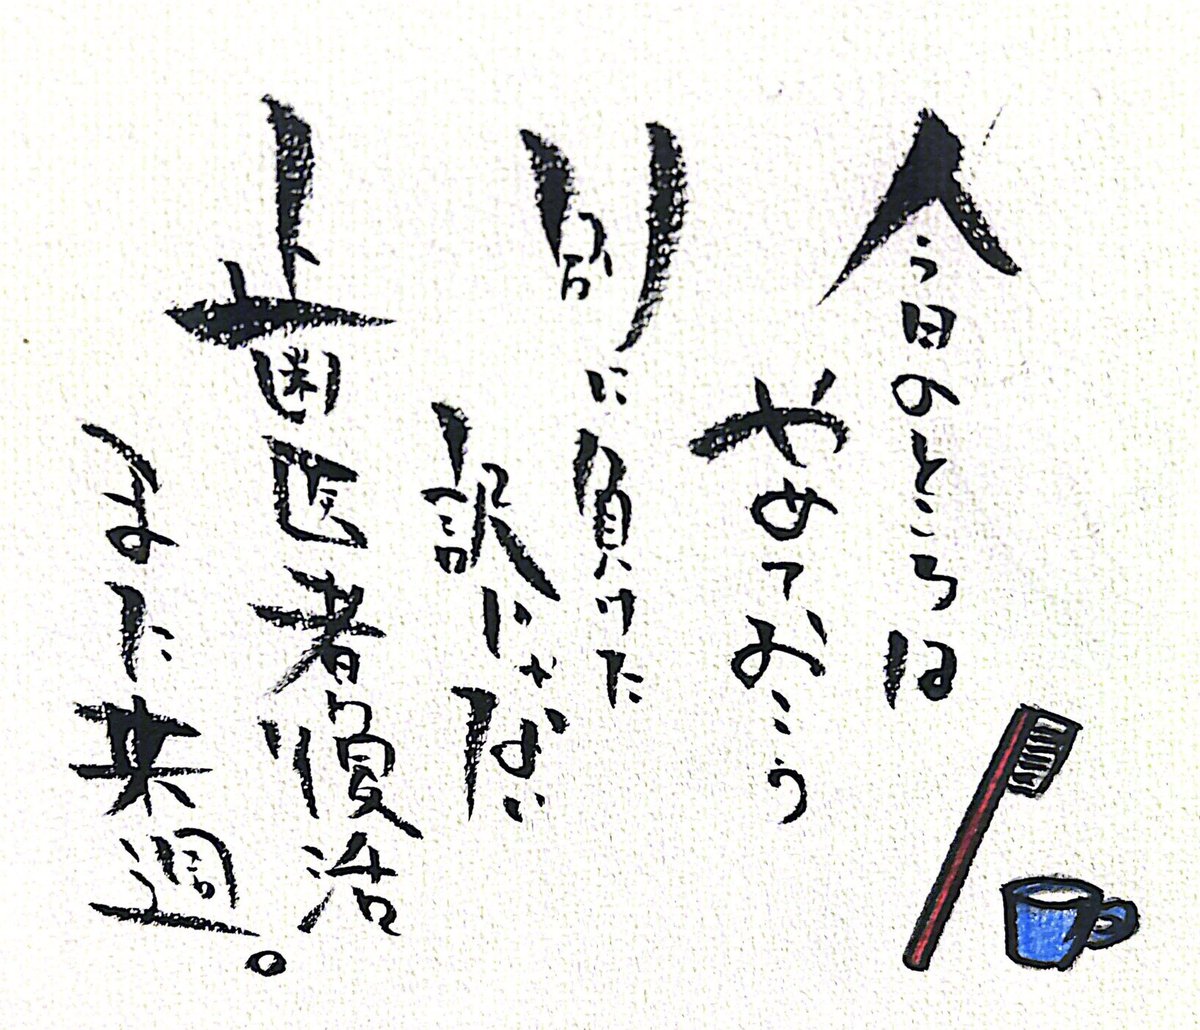 今日のところは
やめておこう
別に負けた
訳じゃない
歯医者優治
また来週。